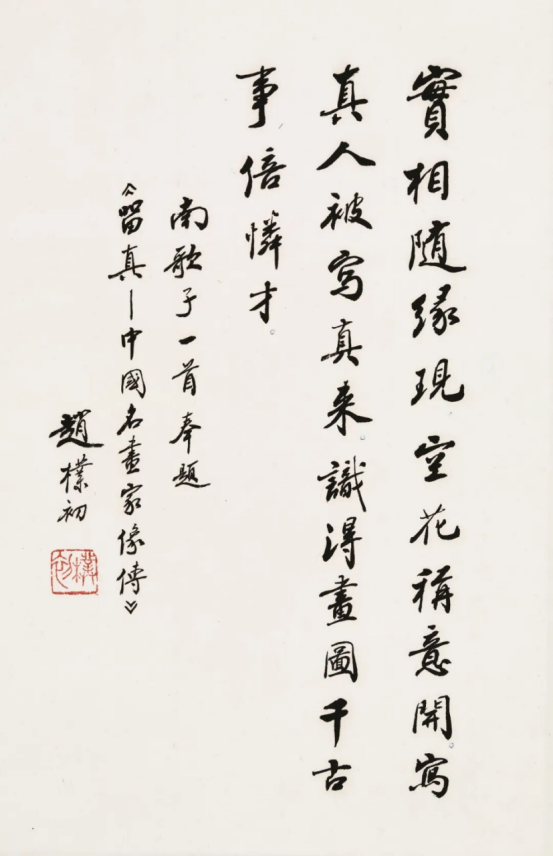 實相随缘現空花稱意開。寫
真人被写真来。識淂畫圖千古
事倍憐才。
南歌子一首奉题
《留真—中國名畫家像傳》
趙樸初
樸初